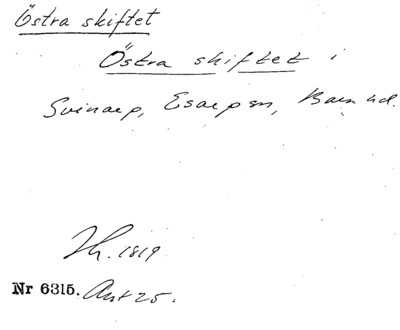 Östra skiftet
Östra skiftet i
Svinarp, Esarps sn, Bara hd.
Th. 1819
Nr 6315. Ant 25.